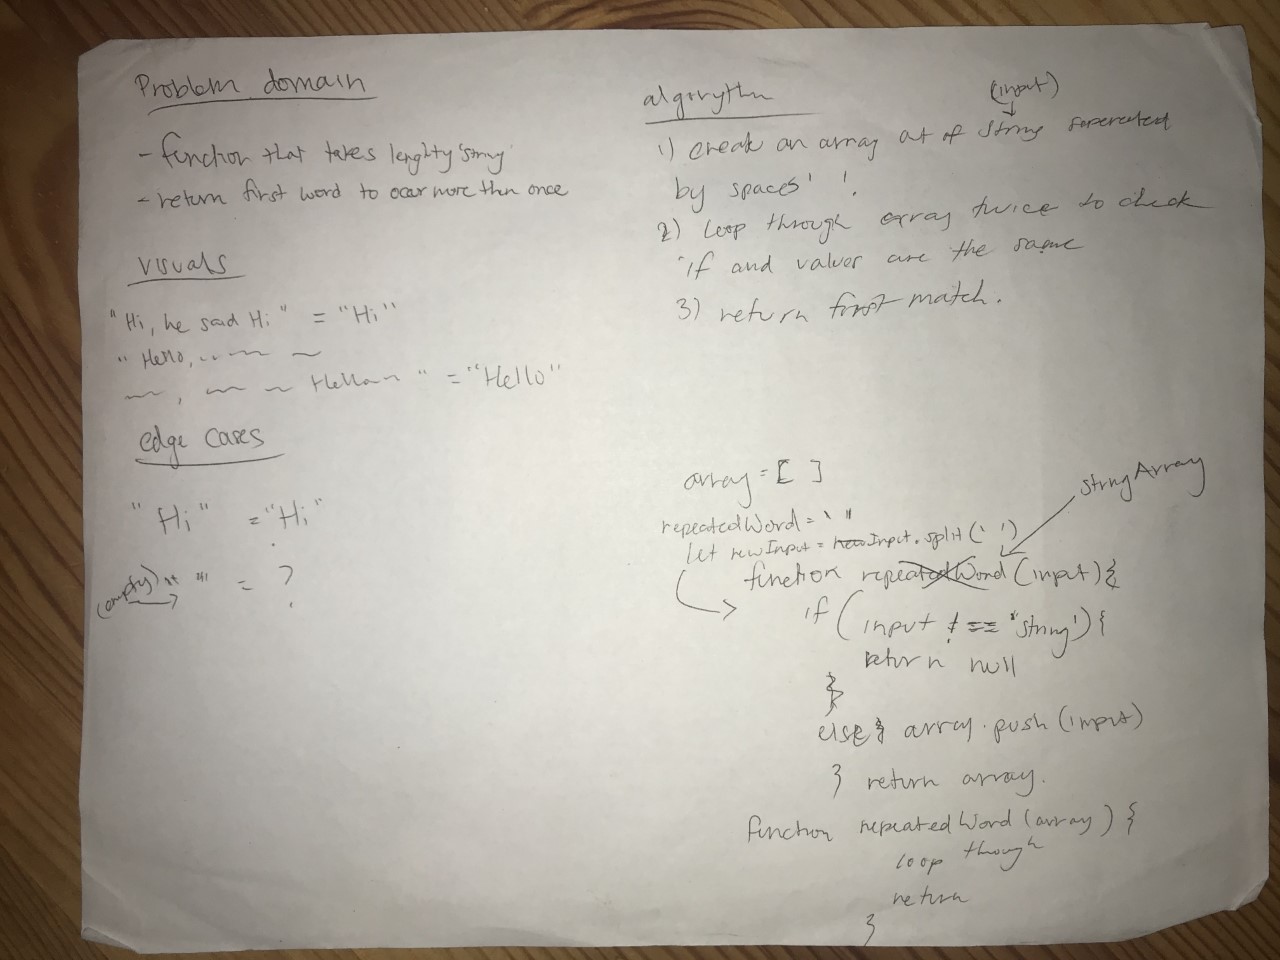 Problem domain
- function that takes lenghty 'string'
- return first word to occur more then once
visuals
"Hi, he said Hi" = "Hi"
" Hello,
, " = "Hello"
edge cases
"Hi" = "Hi"
(empty) " " = ?
algorythm
(input)
1) creak an array out of string seperated
by spaces ' '.
2) loop through array twice to check
if and values are the same
3) return first match.
array = [ ]
stringArray
repeatedWord = ' "
let newInput = newInput.split(' ')
function repeatedWord (input) {
if (input !== 'string') {
return null
}
else { array.push(input)
} return array.
function repeatedWord (array) {
loop through
return
}